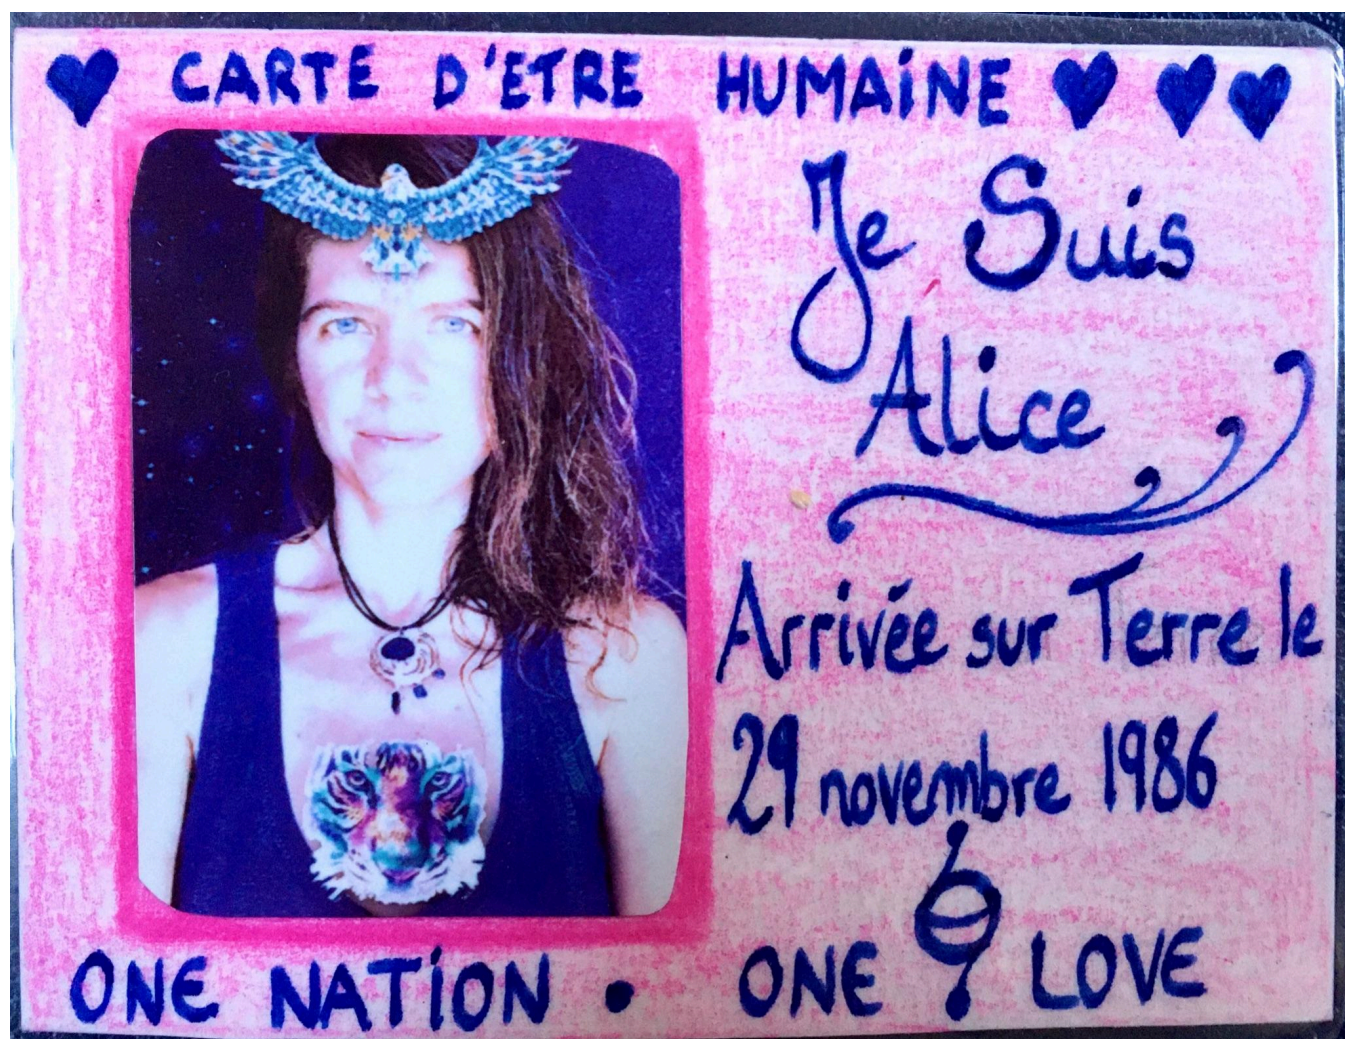 CARTE D'ETRE HUMAINE
Je Suis
Alice
Arrivée sur Terre le
29 novembre 1986
ONE NATION • ONE LOVE